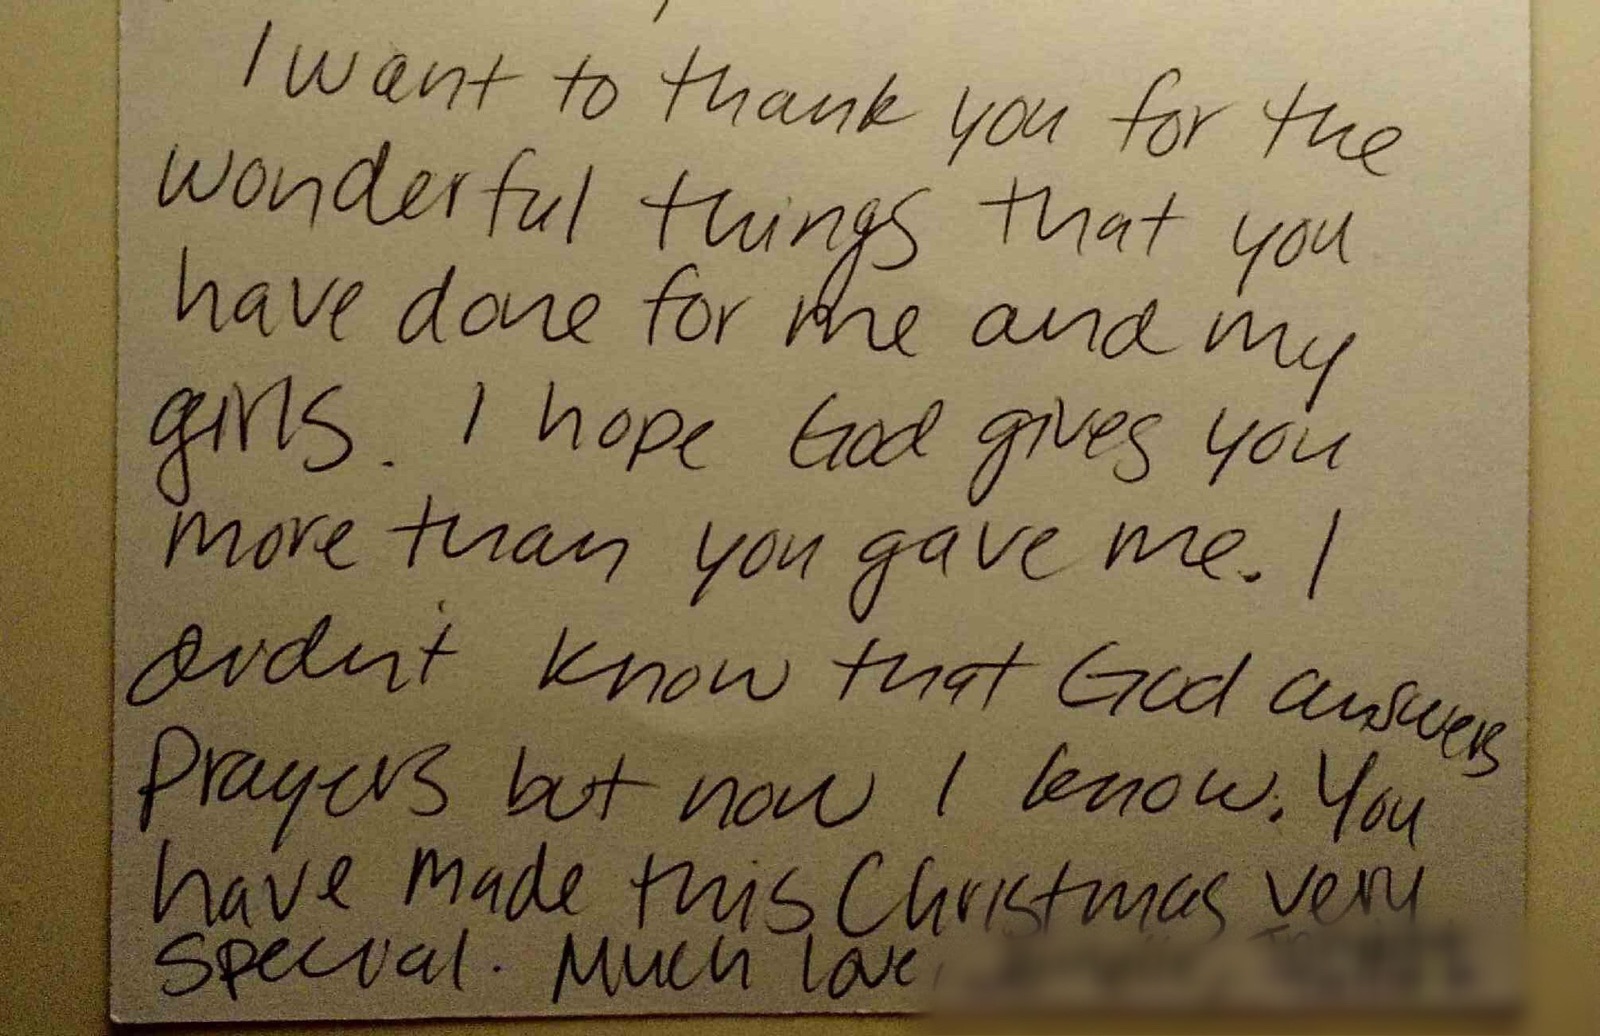 I want to thank you for the
wonderful things that you
have done for me and my
girls. I hope God gives you
more than you gave me. I
didn't know that God answers
Prayers but now I know. You
have made this Christmas very
special. Much love,